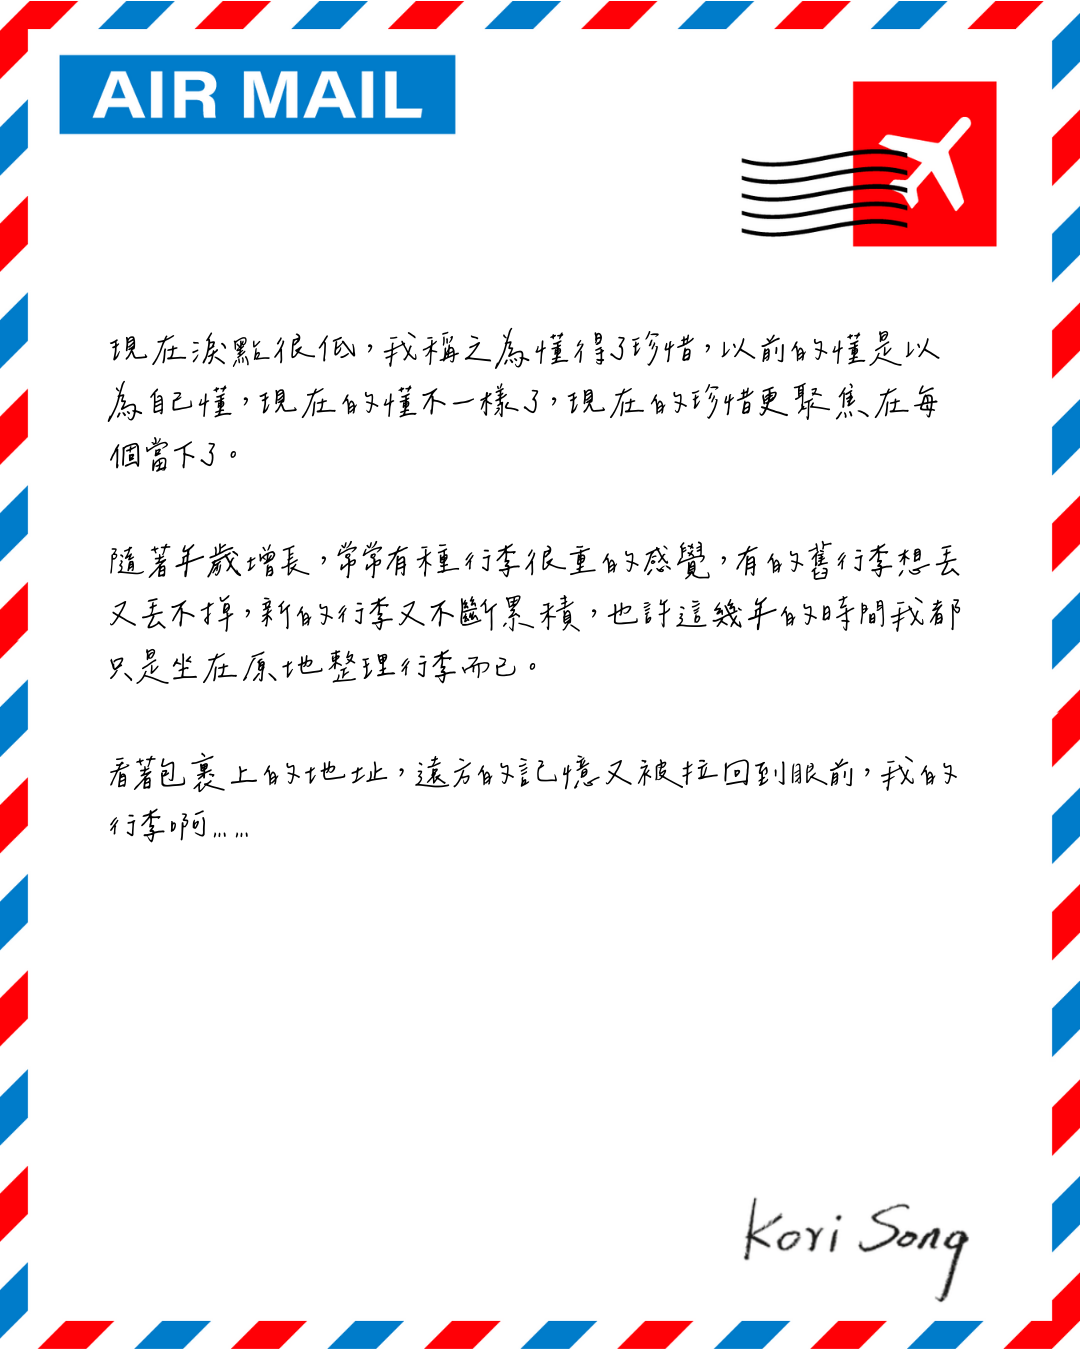 AIR MAIL
現在淚點很低，我稱之為懂得了珍惜，以前的懂是以
為自己懂，現在的懂不一樣了，現在的珍惜更聚焦在每
個當下了。
隨著年歲增長，常常有種行李很重的感覺，有的舊行李想丟
又丟不掉，新的行李又不斷累積，也許這幾年的時間我都
只是坐在原地整理行李而已。
看著包裹上的地址，遠方的記憶又被拉回到眼前，我的
行李啊……
Kori Song